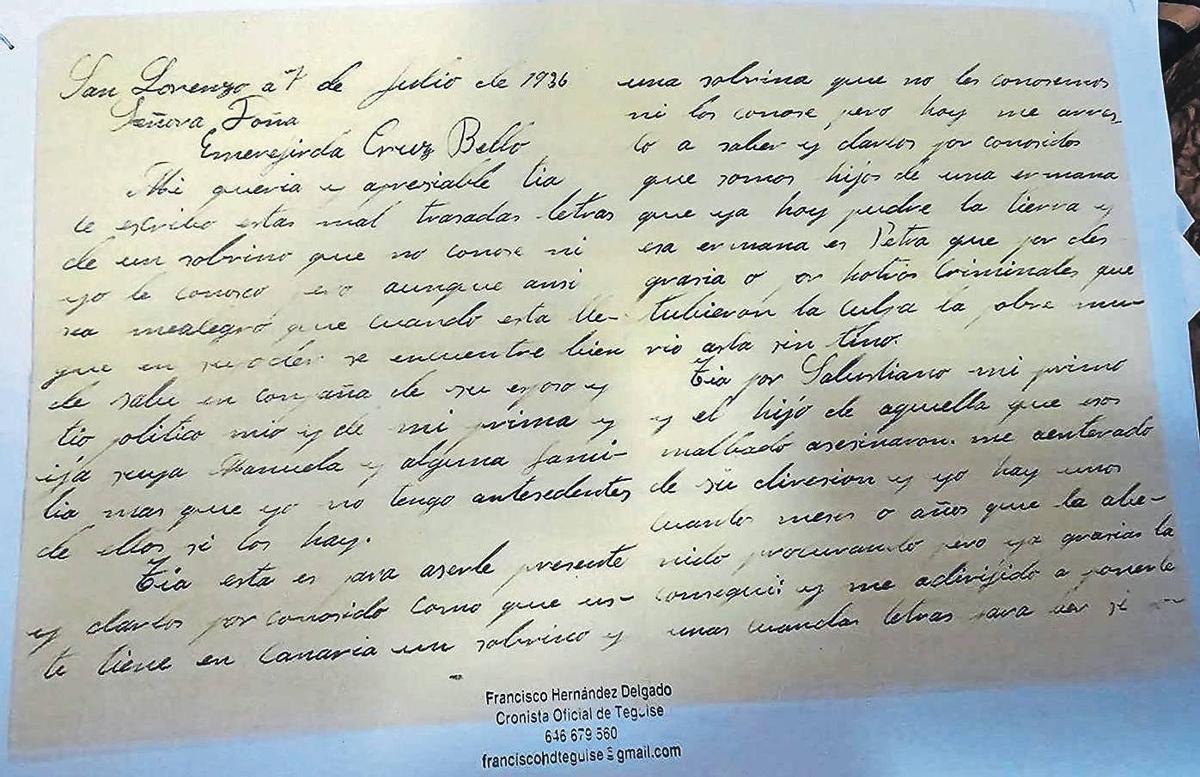 San Lorenzo a 7 de Julio de 1936
Señora Doña
Emerejirda Cruz Bello
Mi queria y apresiable tia
te escribo estas mal trasadas letras
de un sobrino que no conose ni
yo le conosco pero aunque ansi
sea mealegró que cuando esta lle-
gue en su poder se encuentre bien
de salu en conpaña de su esposo y
tio politico mio y de mi prima y
ija suya Manuela y alguna fami-
lia mas que yo no tengo antesedentes
de ellos si los hay.
Tia esta es para aserle presente
y darlos por conosido como que us-
te tiene en Canaria un sobrino y
una sobrina que no les conosemos
ni los conose pero hoy me arres-
to a saber y darlos por conosidos
que somos hijos de una ermana
que ya hoy pudre la tierra y
esa ermana es Petra que por des-
grasia o por hotros Criminales que
tubieron la culpa la pobre mu-
rio asta sin tino.
Tia por Salustiano mi primo
y el hijo de aquella que esos
malbado asesinaron. me aenterado
de su diresion y yo hay unos
cuantos meses o años que la abe-
nido procurando pero ya grasias la
consegui y me adirijido a ponerle
unas cuantas letras para ber si
Francisco Hernández Delgado
Cronista Oficial de Teguise
646 679 560
franciscohdteguise@gmail.com